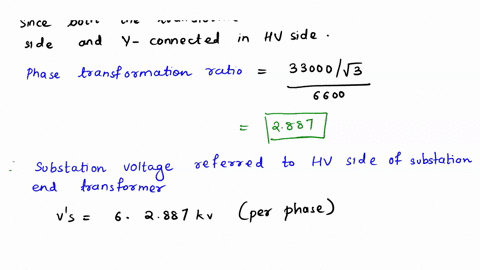 since both the
side and Y- connected in HV side.
Phase transformation ratio = 33000/√3
6600
= 2.887
∴ Substation voltage referred to HV side of substation
end transformer
V's = 6. 2.887 kv (per phase)